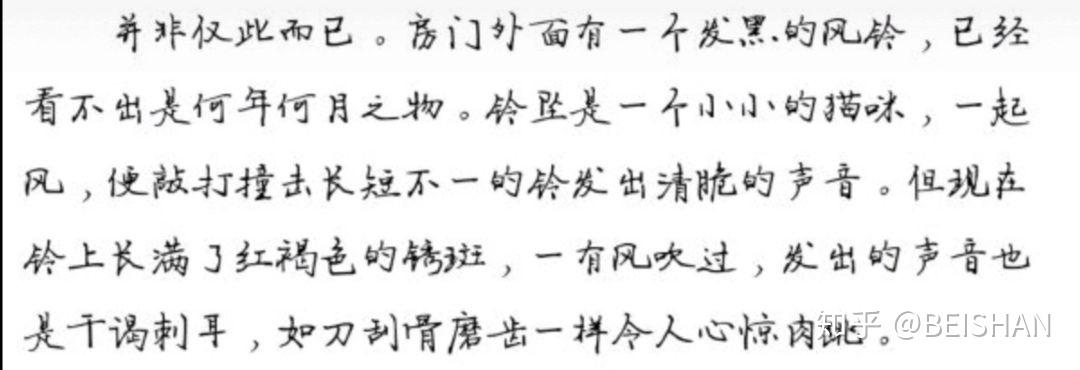 并非仅此而已。房门外面有一个发黑的风铃，已经
看不出是何年何月之物。铃坠是一个小小的猫咪，一起
风，便敲打撞击长短不一的铃发出清脆的声音。但现在
铃上长满了红褐色的锈斑，一有风吹过，发出的声音也
是干谒刺耳，如刀刮骨磨齿一样令人心惊肉跳。
知乎 @BEISHAN